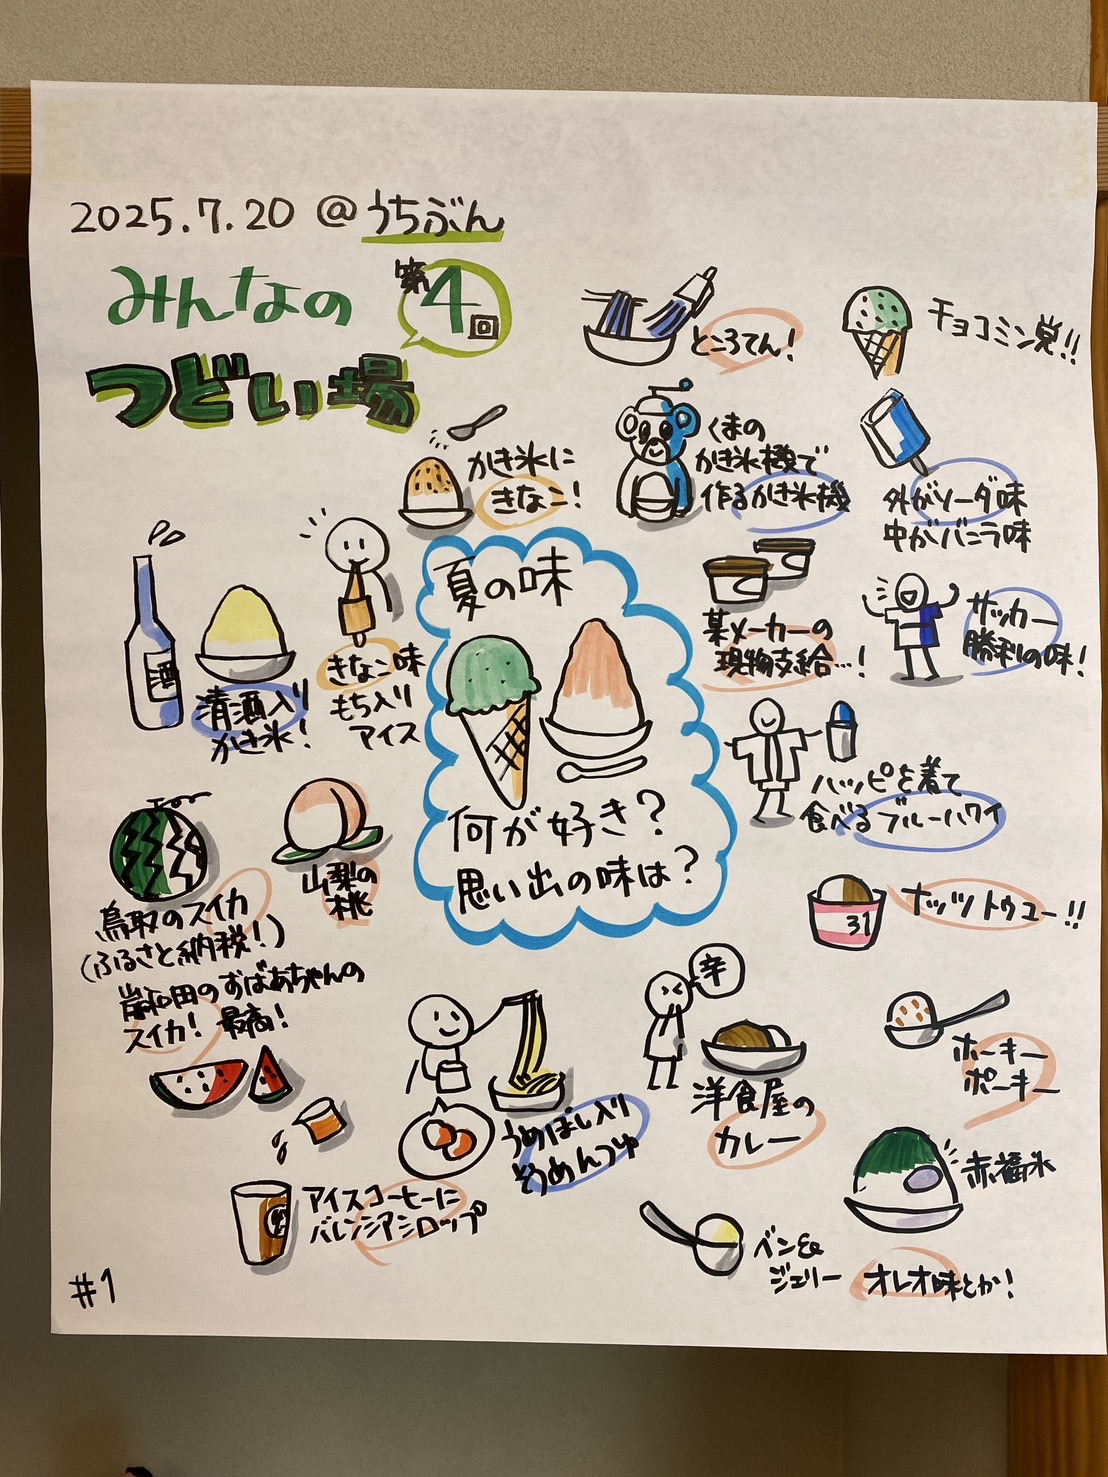 2025.7.20 @うちぶん
みんなの
第4回
つどい場
ところてん!
チョコミン党!!
かき氷に
きなこ!
くまの
かき氷機で
作るかき氷機
外がソーダ味
中がバニラ味
酒
清酒入り
かき氷!
きなこ味
もち入り
アイス
夏の味
何が好き?
思い出の味は?
某メーカーの
現物支給…!
サッカー
勝利の味!
ハッピを着て
食べるブルーハワイ
鳥取のスイカ
(ふるさと納税!)
山梨の
桃
31
ナッツトゥユー!!
岸和田のおばあちゃんの
スイカ! 最高!
うめぼし入り
そうめんつゆ
辛
洋食屋の
カレー
ホーキー
ポーキー
アイスコーヒーに
バレンシアシロップ
赤福氷
ベン&
ジェリー
オレオ味とか!
#1